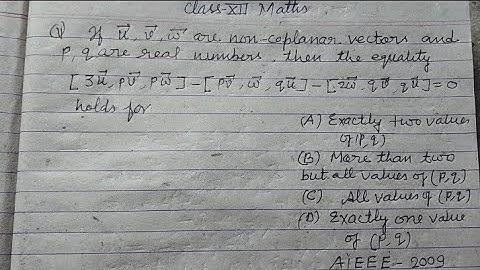 Class-XII Maths
Q) If u⃗, v⃗, w⃗ are non-coplanar vectors and
p, q are real numbers, then the equality
[3u⃗, pv⃗, pw⃗] - [pv⃗, w⃗, qu⃗] - [2w⃗, qv⃗, qu⃗] = 0
holds for
(A) Exactly two values
of (p, q)
(B) More than two
but all values of (p, q)
(C) All values of (p, q)
(D) Exactly one value
of (p, q)
AIEEE - 2009